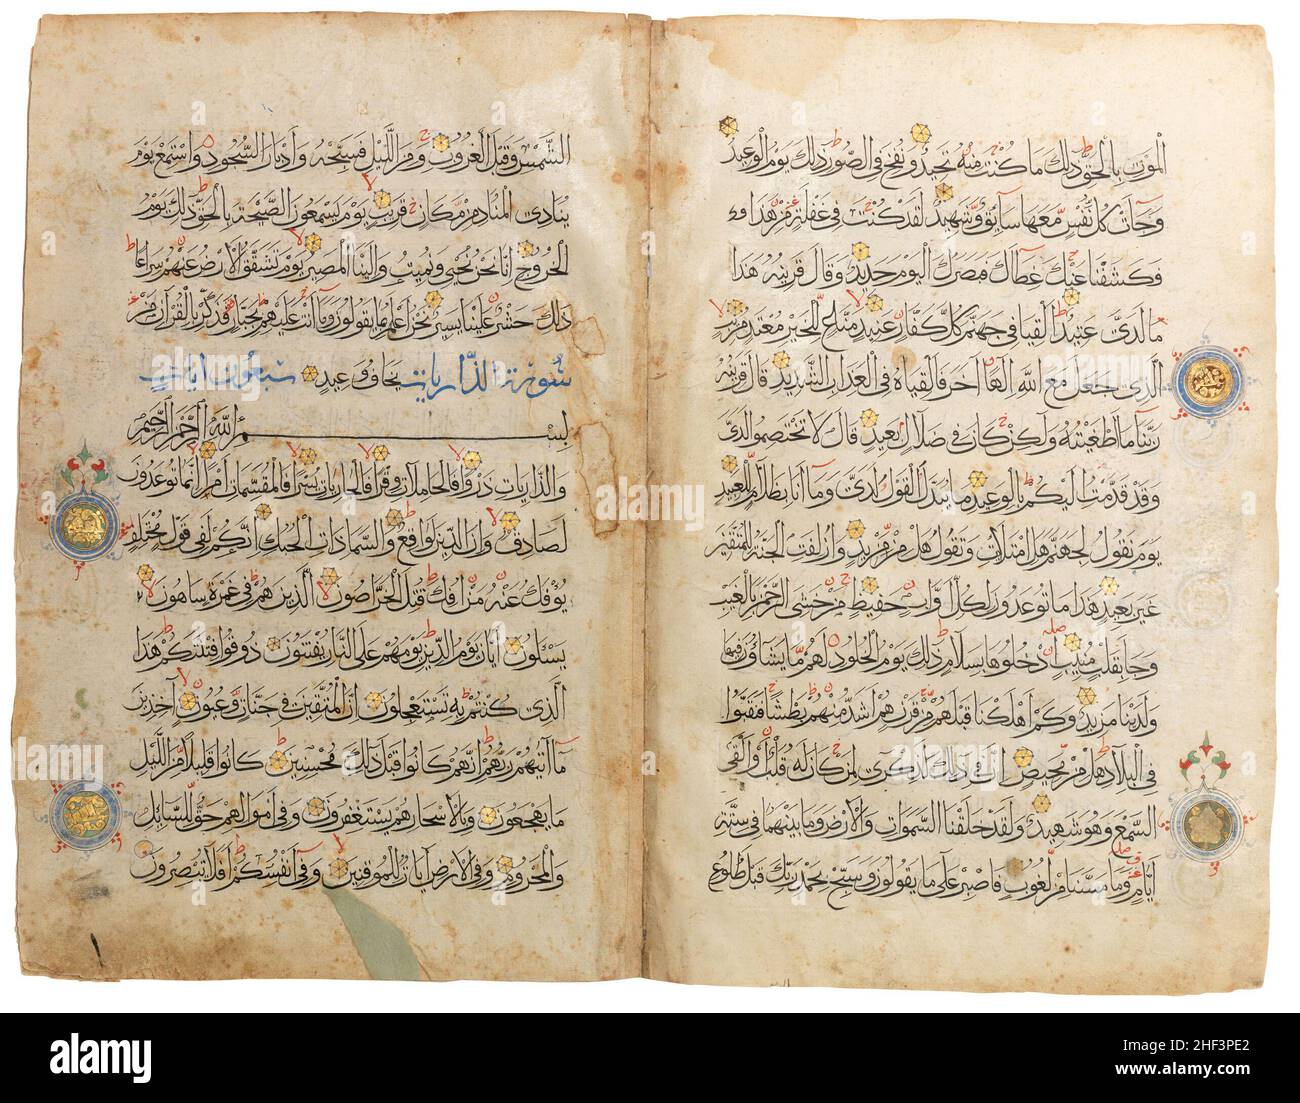 الموت بالحق ذلك ما كنت منه تحيد ونفخ في الصور ذلك يوم الوعيد
وجاءت كل نفس معها سائق وشهيد لقد كنت في غفلة من هذا
فكشفنا عنك غطاءك فبصرك اليوم حديد وقال قرينه هذا
ما لدي عتيد القيا في جهنم كل كفار عنيد مناع للخير معتد مريب
الذي جعل مع الله الها آخر فالقياه في العذاب الشديد قال قرينه
ربنا ما اطغيته ولكن كان في ضلال بعيد قال لا تختصموا لدي
وقد قدمت اليكم بالوعيد ما يبدل القول لدي وما انا بظلام للعبيد
يوم نقول لجهنم هل امتلات وتقول هل من مزيد وازلفت الجنة للمتقين
غير بعيد هذا ما توعدون لكل اواب حفيظ من خشي الرحمن بالغيب
وجاء بقلب منيب ادخلوها بسلام ذلك يوم الخلود لهم ما يشاؤن فيها
ولدينا مزيد وكم اهلكنا قبلهم من قرن هم اشد منهم بطشا فنقبوا
في البلاد هل من محيص ان في ذلك لذكرى لمن كان له قلب او القى
السمع وهو شهيد ولقد خلقنا السموات والارض وما بينهما في ستة
ايام وما مسنا من لغوب فاصبر على ما يقولون وسبح بحمد ربك قبل طلوع
الشمس وقبل الغروب ومن الليل فسبحه وادبار السجود واستمع يوم
يناد المناد من مكان قريب يوم يسمعون الصيحة بالحق ذلك يوم
الخروج انا نحن نحيي ونميت والينا المصير يوم تشقق الارض عنهم سراعا
ذلك حشر علينا يسير نحن اعلم بما يقولون وما انت عليهم بجبار فذكر بالقران من
يخاف وعيد سورة الذاريات ستون آيات
بسم الله الرحمن الرحيم
والذاريات ذروا فالحاملات وقرا فالجاريات يسرا فالمقسمات امرا انما توعدون
لصادق وان الدين لواقع والسماء ذات الحبك انكم لفي قول مختلف
يؤفك عنه من افك قتل الخراصون الذين هم في غمرة ساهون
يسئلون ايان يوم الدين يوم هم على النار يفتنون ذوقوا فتنتكم هذا
الذي كنتم به تستعجلون ان المتقين في جنات وعيون آخذين
ما آتيهم ربهم انهم كانوا قبل ذلك محسنين كانوا قليلا من الليل
ما يهجعون وبالاسحار هم يستغفرون وفي اموالهم حق للسائل
والمحروم وفي الارض آيات للموقنين وفي انفسكم افلا تبصرون
alamy
Image ID: 2HF3PE2
www.alamy.com